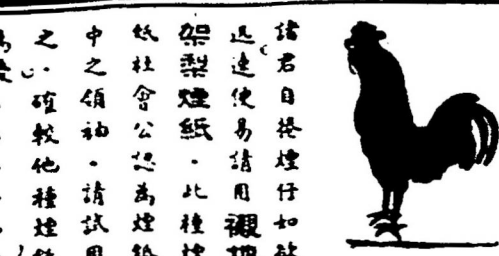 諸君自捲煙仔如欲
迅速便易請用襯
架梨煙紙。此種煙
紙社會公認為煙紙
中之領袖。請試用
之。確較他種煙紙